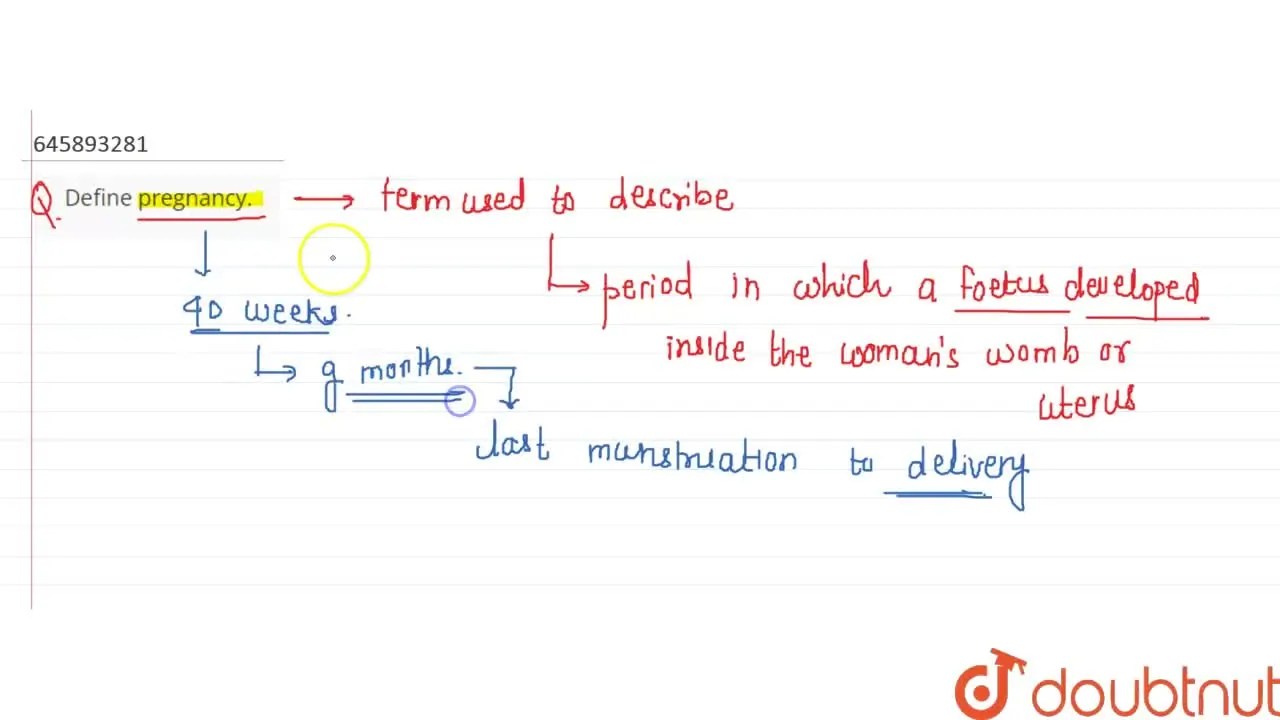 645893281
Q. Define pregnancy. → term used to describe
period in which a foetus developed
40 weeks.
inside the woman's womb or
9 months.
uterus
last munstruation to delivery
doubtnut